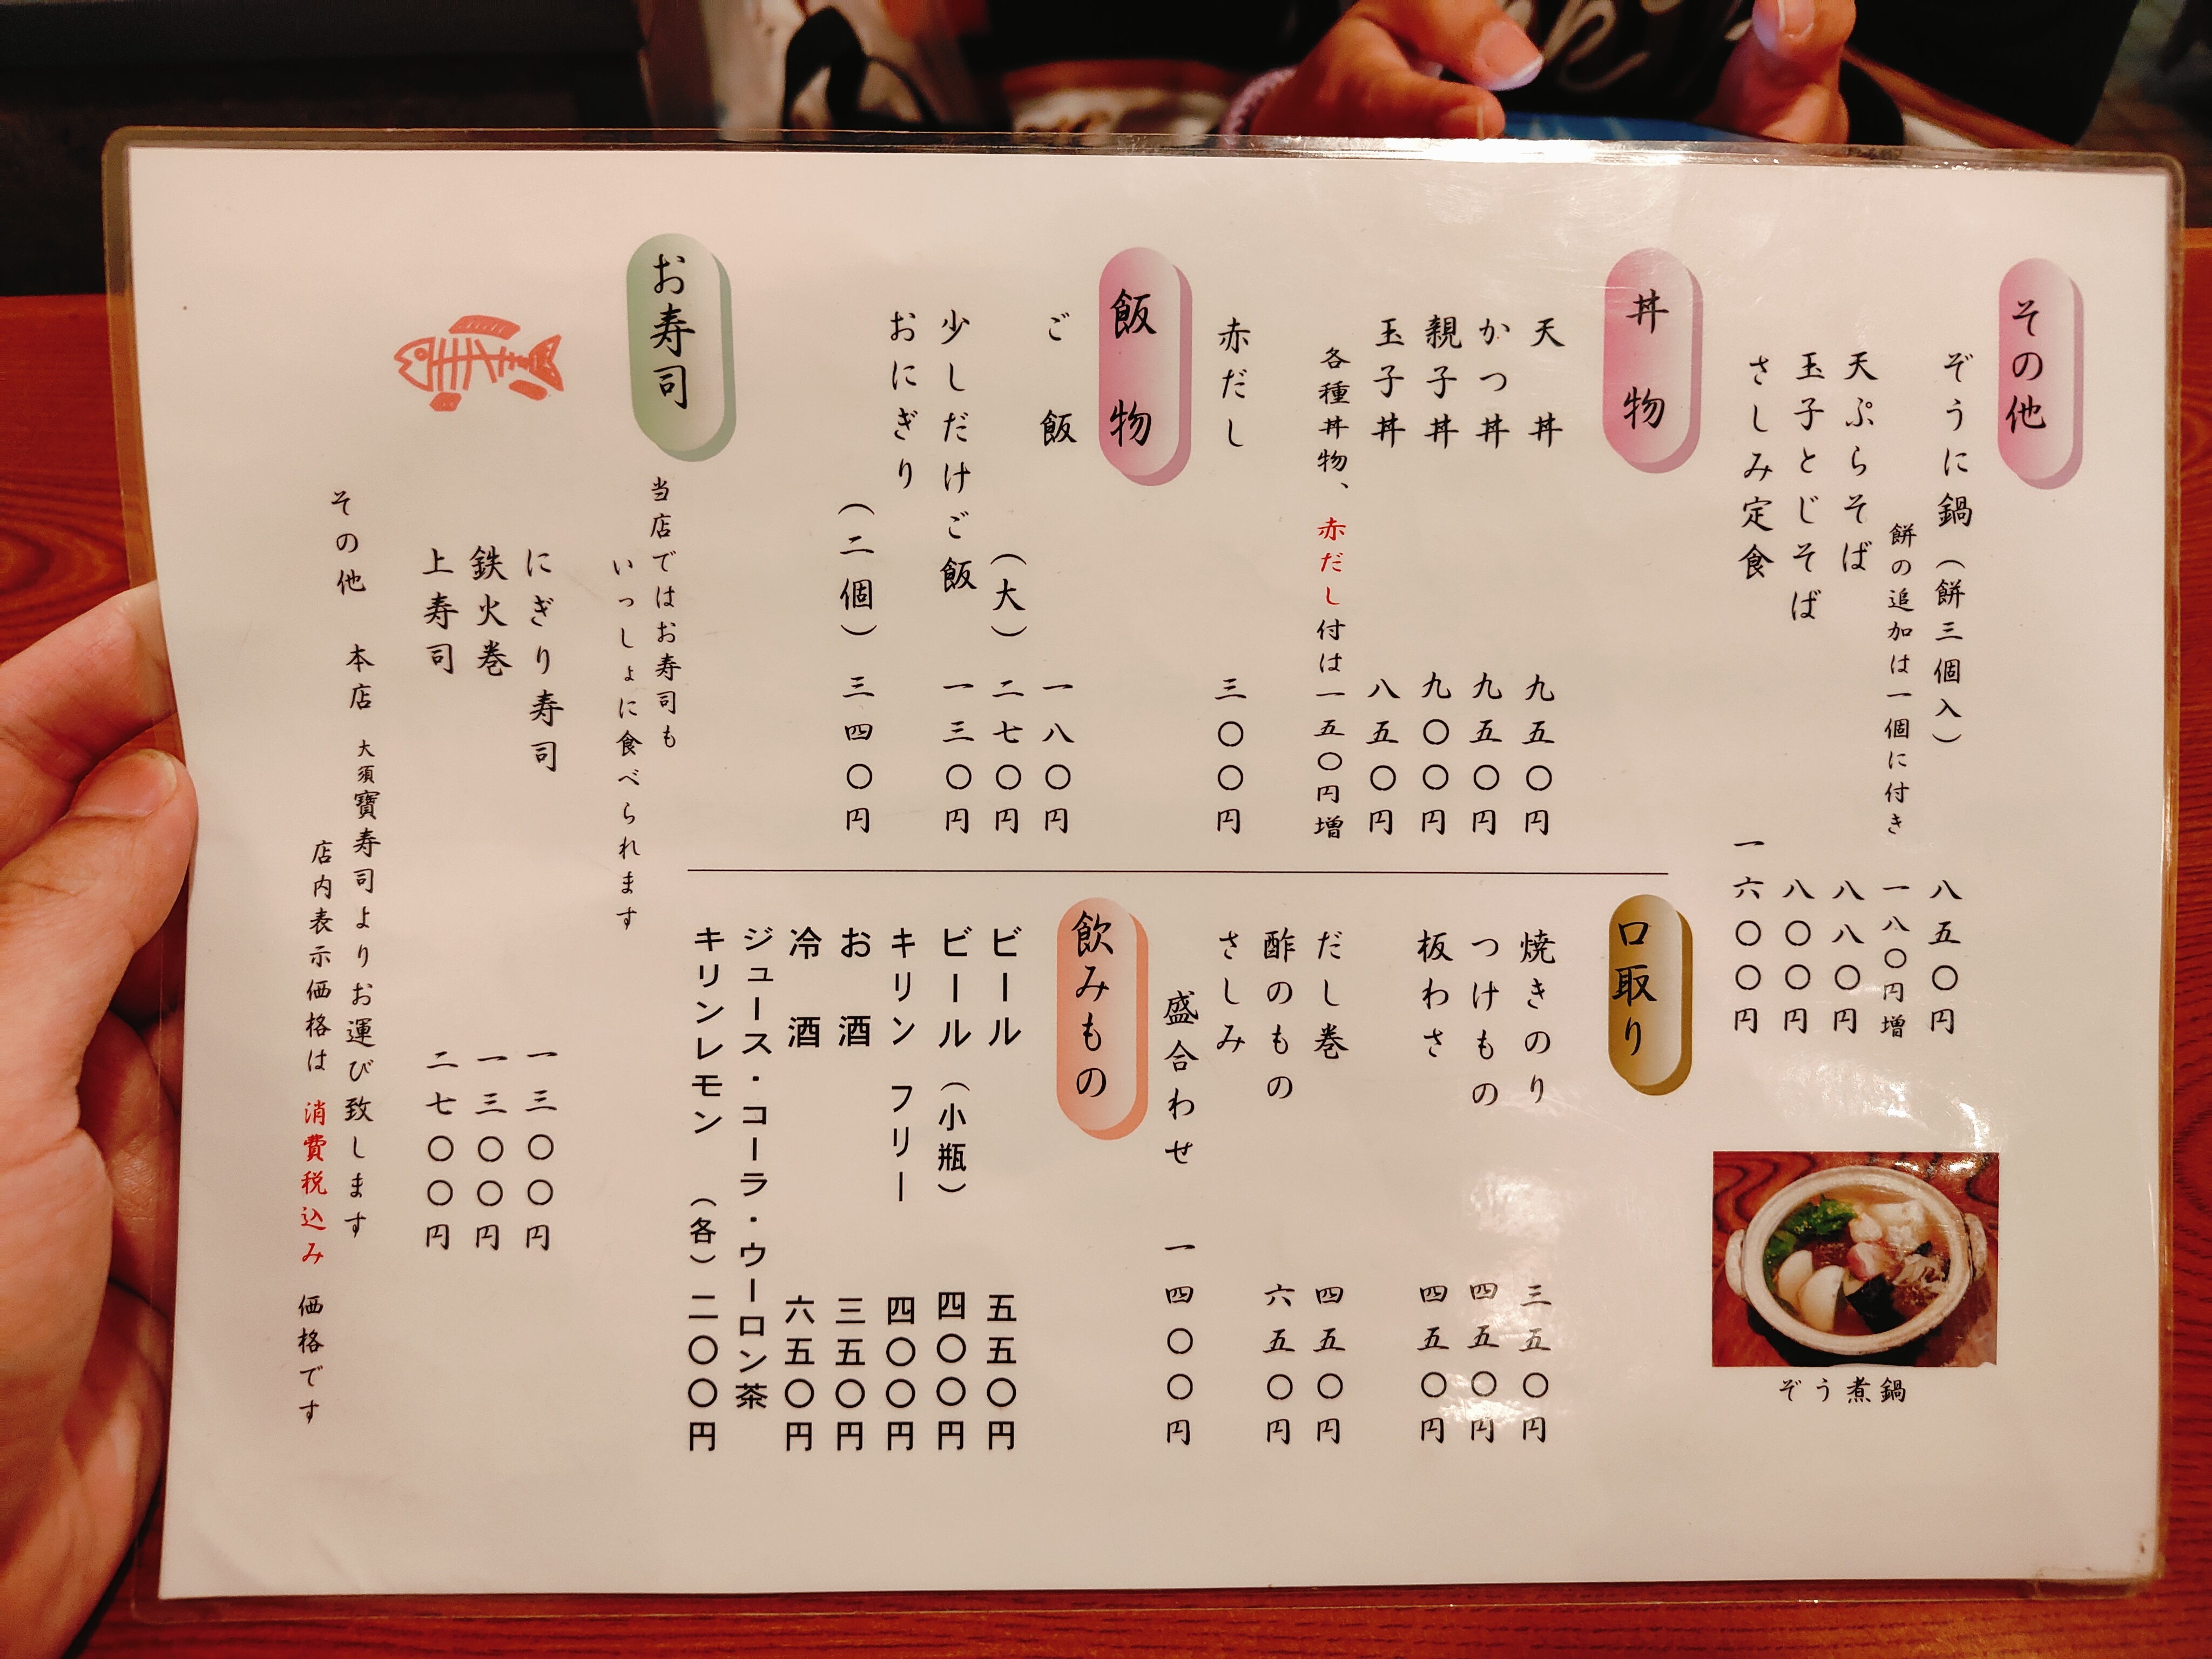 その他
ぞうに鍋（餅三個入） 八五〇円
餅の追加は一個に付き 一八〇円増
天ぷらそば 八八〇円
玉子とじそば 八〇〇円
さしみ定食 一六〇〇円
ぞう煮鍋
丼物
天丼 九五〇円
かつ丼 九五〇円
親子丼 九〇〇円
玉子丼 八五〇円
各種丼物、赤だし付は一五〇円増
赤だし 三〇〇円
飯物
ご飯 一八〇円
（大） 二七〇円
少しだけご飯 一三〇円
おにぎり
（二個） 三四〇円
口取り
焼きのり 三五〇円
つけもの 四五〇円
板わさ 四五〇円
だし巻 四五〇円
酢のもの 六五〇円
さしみ
盛合わせ 一四〇〇円
飲みもの
ビール 五五〇円
ビール（小瓶） 四〇〇円
キリン フリー 四〇〇円
お酒 三五〇円
冷酒 六五〇円
ジュース・コーラ・ウーロン茶
キリンレモン （各）二〇〇円
お寿司
当店ではお寿司も
いっしょに食べられます
にぎり寿司 一三〇〇円
鉄火巻 一三〇〇円
上寿司 二七〇〇円
その他 本店 大須寶寿司よりお運び致します
店内表示価格は 消費税込み 価格です